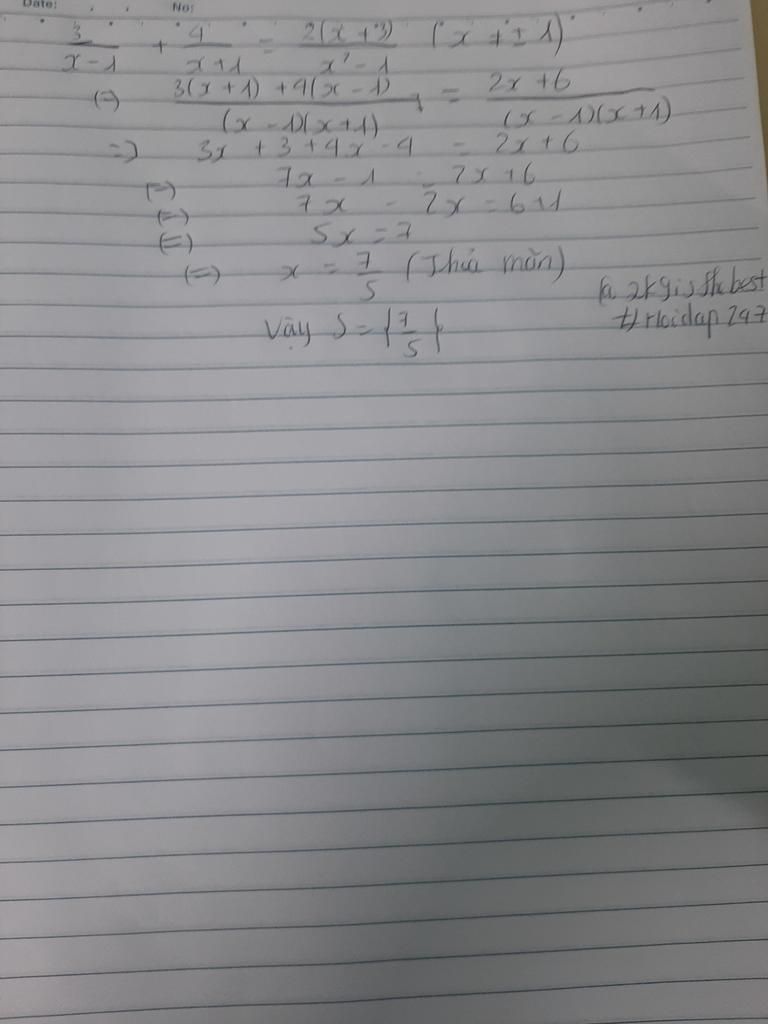 Date: No:
3/(x-1) + 4/(x+1) = 2(x+3)/(x²-1) (x ≠ ±1)
(=) (3(x+1)+4(x-1))/((x-1)(x+1)) = (2x+6)/((x-1)(x+1))
=) 3x+3+4x-4 = 2x+6
(=) 7x-1 = 2x+6
(=) 7x - 2x = 6+1
(=) 5x = 7
(=) x = 7/5 (Thỏa mãn)
Vậy S = {7/5}
2k9isthebest
#Hoidap247